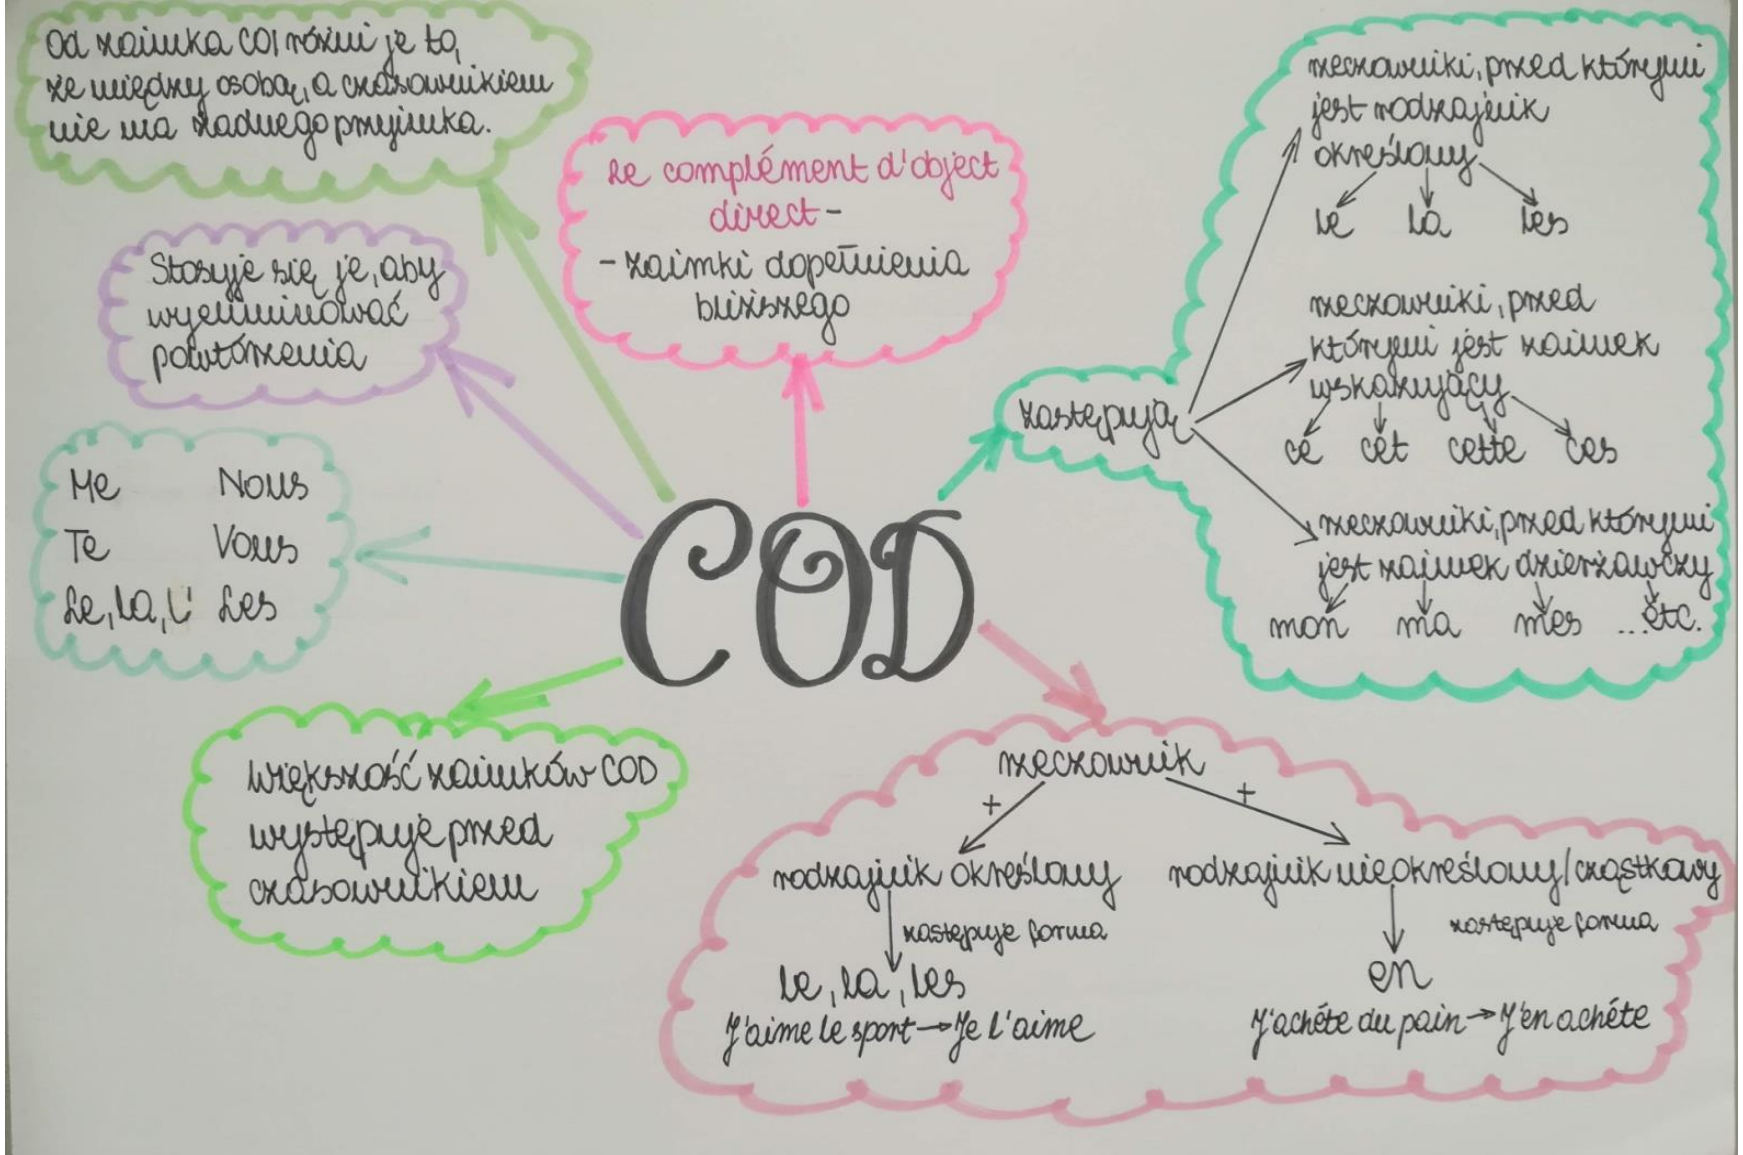 Od zaimka COI różni je to,
że między osobą, a czasownikiem
nie ma żadnego przyimka.
Le complément d'object
direct -
- zaimki dopełnienia
bliższego
Stosuje się je, aby
wyeliminować
powtórzenia
Me Nous
Te Vous
Le, la, l' Les
COD
Większość zaimków COD
występuje przed
czasownikiem
zastępują
rzeczowniki, przed którymi
jest rodzajnik
określony
le la les
rzeczowniki, przed
którymi jest zaimek
wskazujący
ce cet cette ces
rzeczowniki, przed którymi
jest zaimek dzierżawczy
mon ma mes ...etc.
rzeczownik
+ +
rodzajnik określony
zastępuje forma
le, la, les
J'aime le sport → Je l'aime
rodzajnik nieokreślony/cząstkowy
zastępuje forma
en
J'achéte du pain → J'en achéte